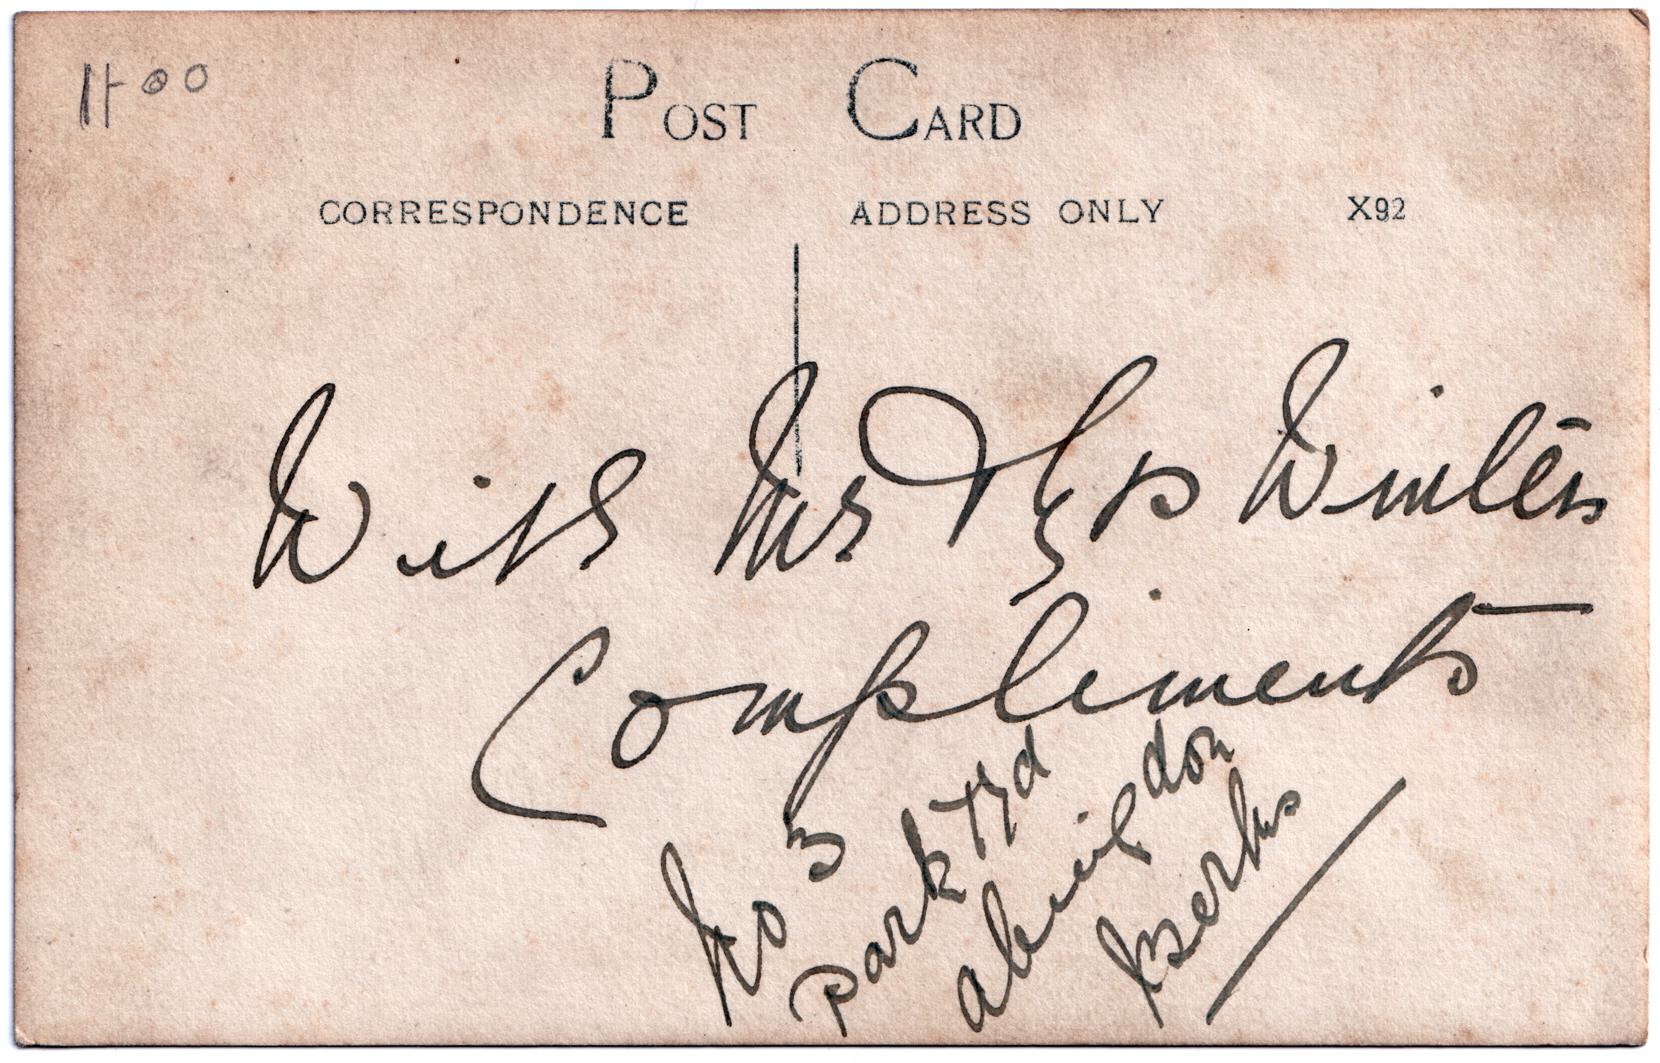 POST CARD
CORRESPONDENCE
ADDRESS ONLY X92
With Mr Winters
Compliments
No 3
Park Rd
abingdon
Berks